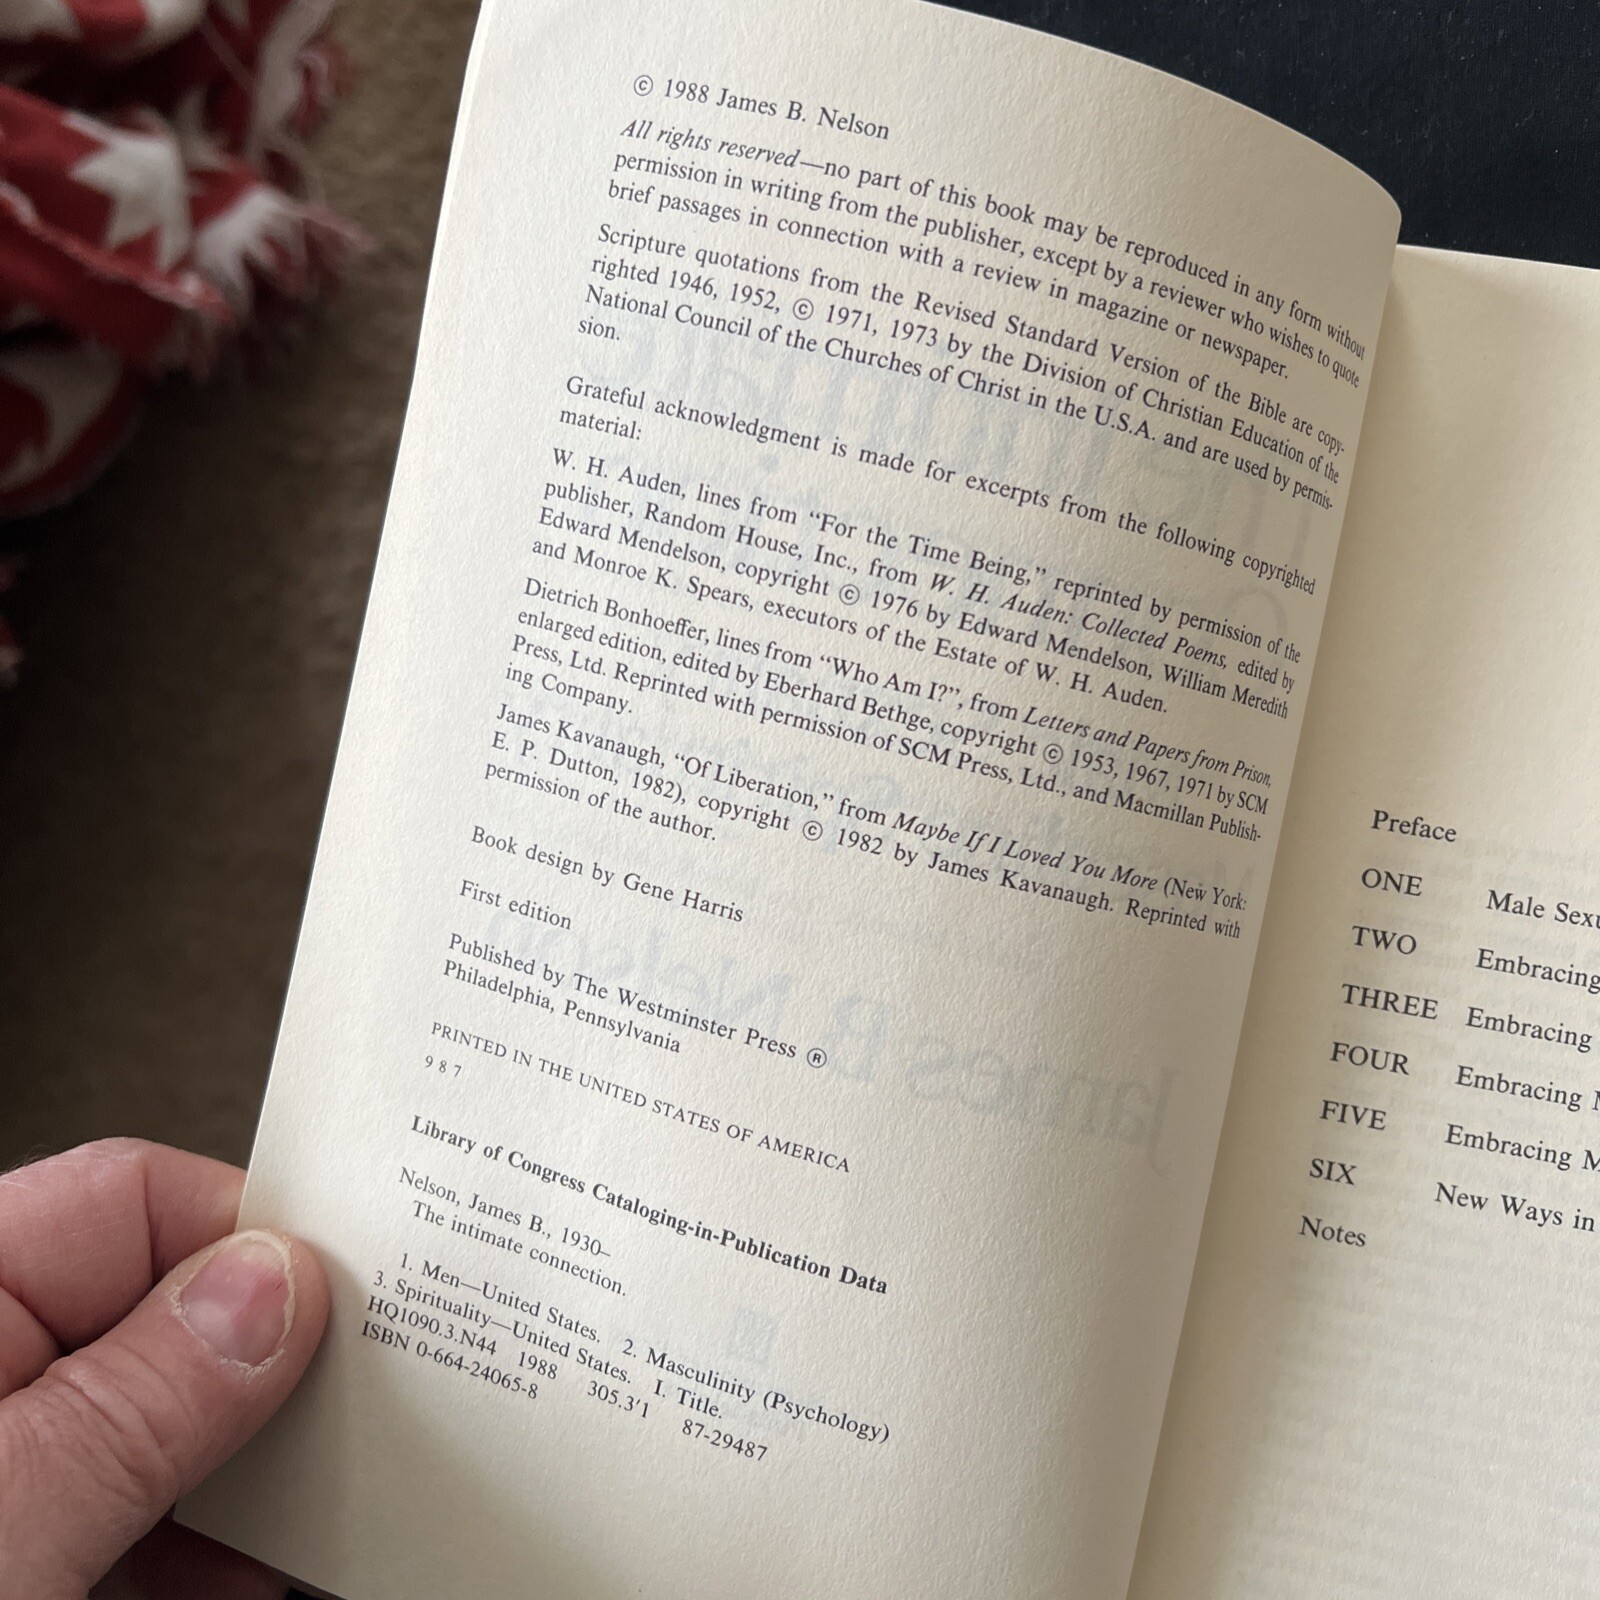 © 1988 James B. Nelson
All rights reserved—no part of this book may be reproduced in any form without
permission in writing from the publisher, except by a reviewer who wishes to quote
brief passages in connection with a review in magazine or newspaper.
Scripture quotations from the Revised Standard Version of the Bible are copy-
righted 1946, 1952, © 1971, 1973 by the Division of Christian Education of the
National Council of the Churches of Christ in the U.S.A. and are used by permis-
sion.
Grateful acknowledgment is made for excerpts from the following copyrighted
material:
W. H. Auden, lines from “For the Time Being,” reprinted by permission of the
publisher, Random House, Inc., from W. H. Auden: Collected Poems, edited by
Edward Mendelson, copyright © 1976 by Edward Mendelson, William Meredith
and Monroe K. Spears, executors of the Estate of W. H. Auden.
Dietrich Bonhoeffer, lines from “Who Am I?”, from Letters and Papers from Prison,
enlarged edition, edited by Eberhard Bethge, copyright © 1953, 1967, 1971 by SCM
Press, Ltd. Reprinted with permission of SCM Press, Ltd., and Macmillan Publish-
ing Company.
James Kavanaugh, “Of Liberation,” from Maybe If I Loved You More (New York:
E. P. Dutton, 1982), copyright © 1982 by James Kavanaugh. Reprinted with
permission of the author.
Book design by Gene Harris
First edition
Published by The Westminster Press ®
Philadelphia, Pennsylvania
PRINTED IN THE UNITED STATES OF AMERICA
9 8 7
Library of Congress Cataloging-in-Publication Data
Nelson, James B., 1930–
The intimate connection.
1. Men—United States. 2. Masculinity (Psychology)
3. Spirituality—United States. I. Title.
HQ1090.3.N44 1988 305.3′1 87-29487
ISBN 0-664-24065-8
Preface
ONE Male
TWO Embracing
THREE Embracing
FOUR Embracing
FIVE Embracing
SIX New Ways in
Notes